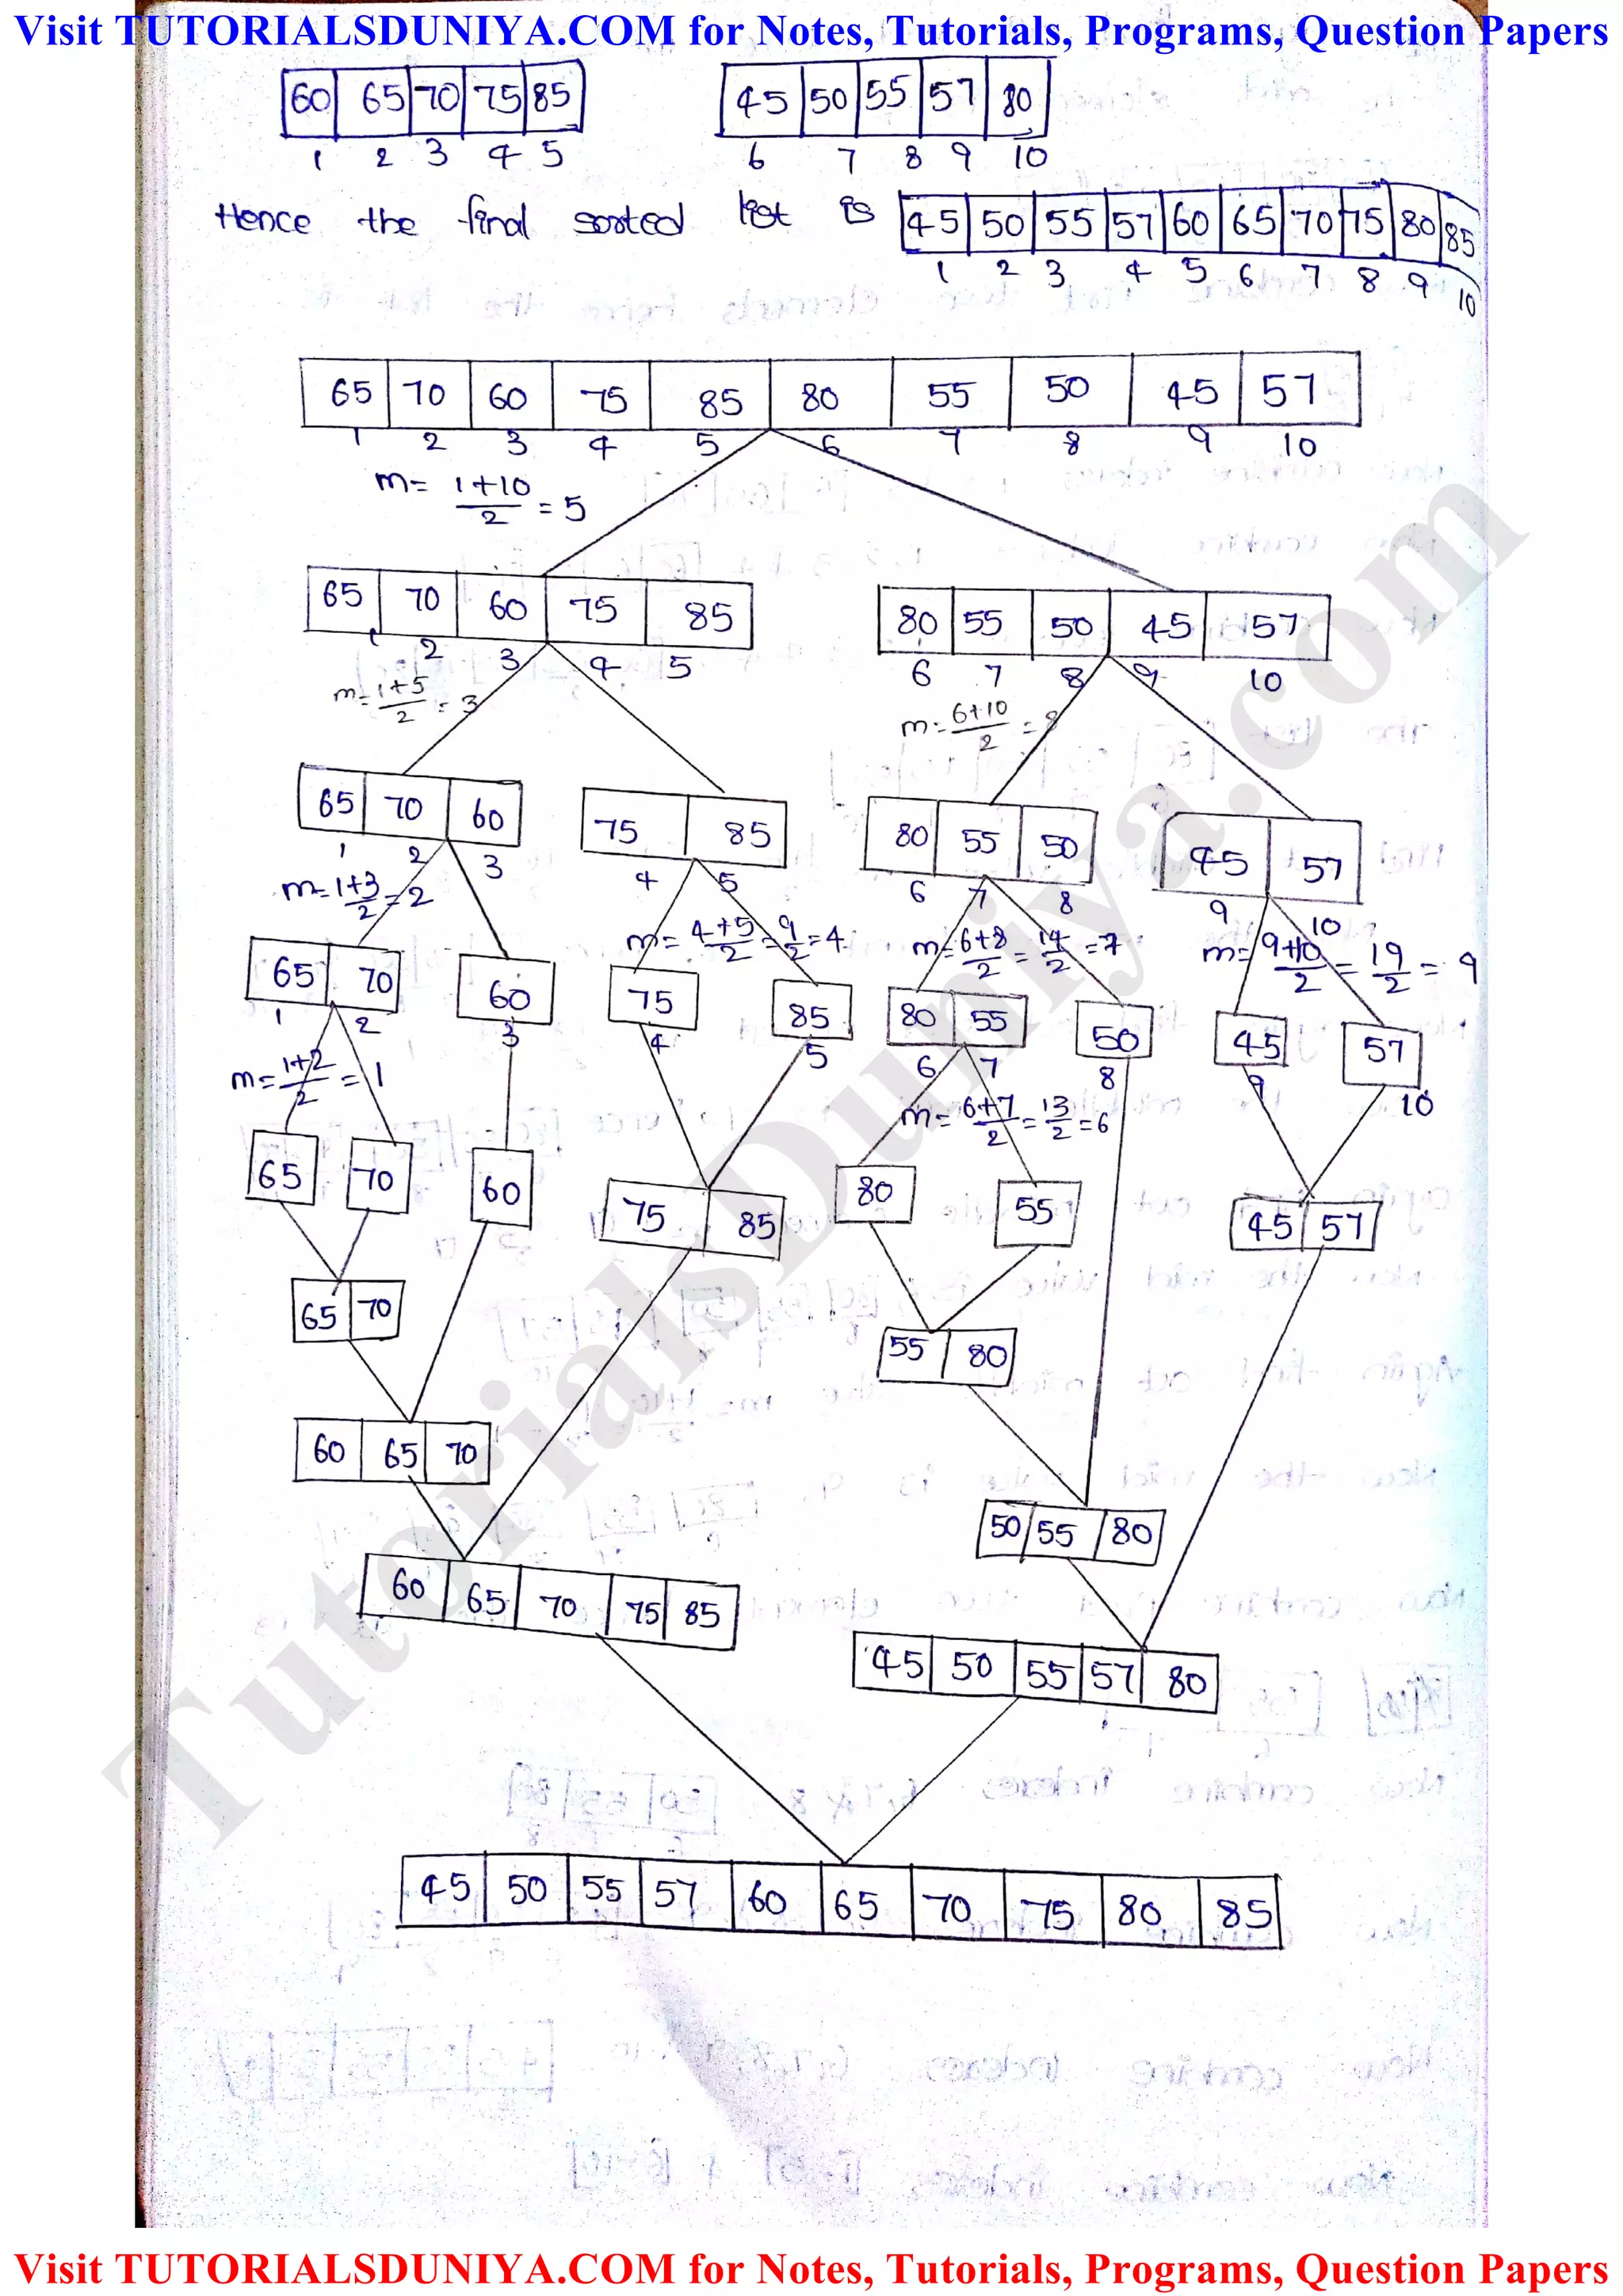 Visit TUTORIALSDUNIYA.COM for Notes, Tutorials, Programs, Question Papers
60 65 70 75 85 45 50 55 57 80
1 2 3 4 5 6 7 8 9 10
Hence the final sorted list is 45 50 55 57 60 65 70 75 80 85
1 2 3 4 5 6 7 8 9 10
65 70 60 75 85 80 55 50 45 57
1 2 3 4 5 6 7 8 9 10
m= 1+10/2 = 5
65 70 60 75 85 80 55 50 45 57
1 2 3 4 5 6 7 8 9 10
m= 1+5/2 = 3 m= 6+10/2 = 8
65 70 60 75 85 80 55 50 45 57
1 2 3 4 5 6 7 8 9 10
m= 1+3/2 = 2 m= 4+5/2 = 9/2 = 4 m= 6+8/2 = 14/2 = 7 m= 9+10/2 = 19/2 = 9
65 70 60 75 85 80 55 50 45 57
1 2 3 4 5 6 7 8 9 10
m= 1+2/2 = 1 m= 6+7/2 = 13/2 = 6
65 70 60 75 85 80 55 45 57
65 70 55 80
60 65 70 50 55 80
60 65 70 75 85 45 50 55 57 80
45 50 55 57 60 65 70 75 80 85
TutorialsDuniya.com
Visit TUTORIALSDUNIYA.COM for Notes, Tutorials, Programs, Question Papers